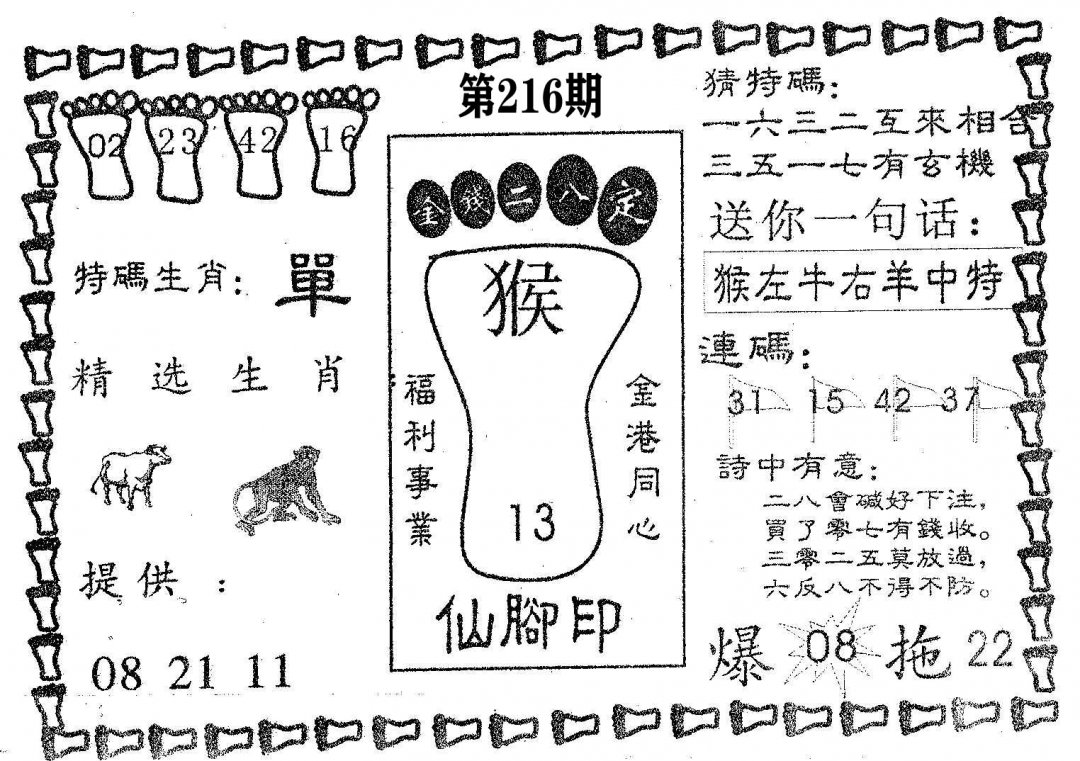 第216期
02 23 42 16
特碼生肖：單
精选生肖
提供：
08 21 11
金錢二八定
猴
福利事業
金港同心
13
仙腳印
猜特碼：
一六三二互來相合
三五一七有玄機
送你一句话：
猴左牛右羊中特
連碼：
31 15 42 37
詩中有意：
二八會碱好下注，
買了零七有錢收。
三零二五莫放過，
六反八不得不防。
爆 08 拖 22